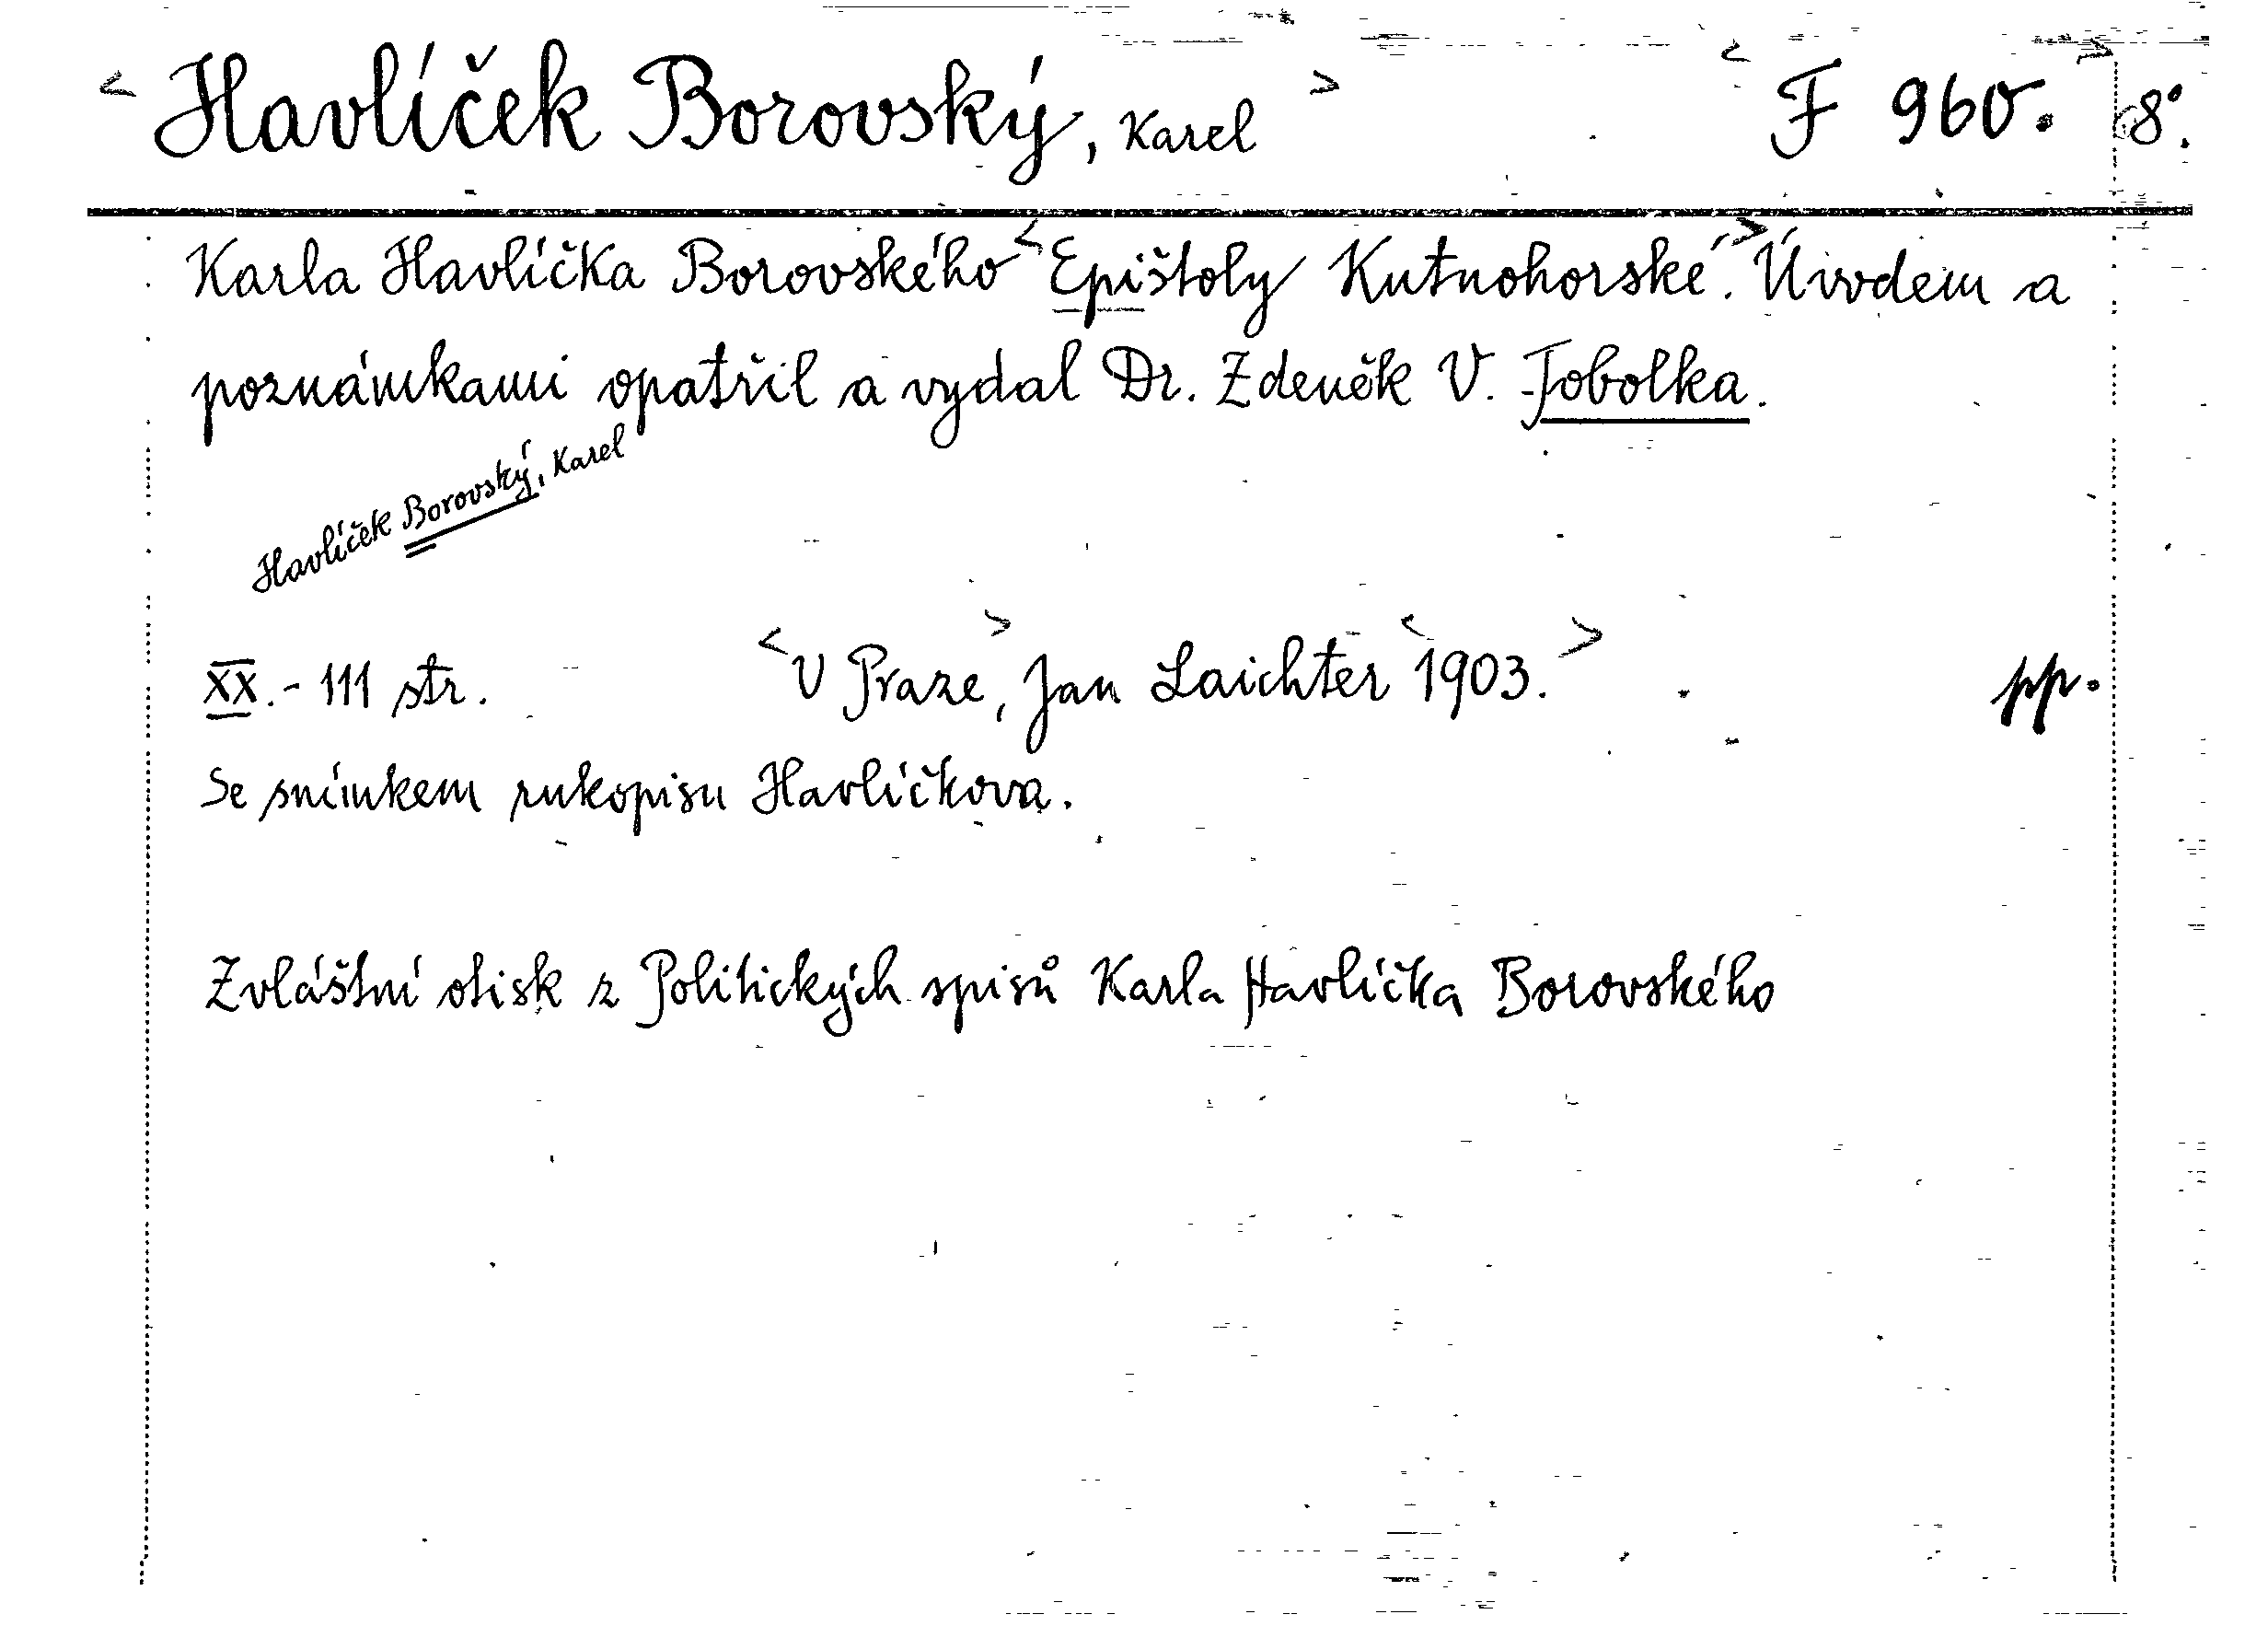 < Havlíček Borovský, Karel > < F 960. > 8°.
Karla Havlíčka Borovského < Epištoly Kutnohorské. > Úvodem a
poznámkami opatřil a vydal Dr. Zdeněk V. Tobolka.
Havlíček Borovský, Karel
XX. - 111 str. < V Praze >, Jan Laichter < 1903. > pp.
Se snímkem rukopisu Havlíčkova.
Zvláštní otisk z Politických spisů Karla Havlíčka Borovského